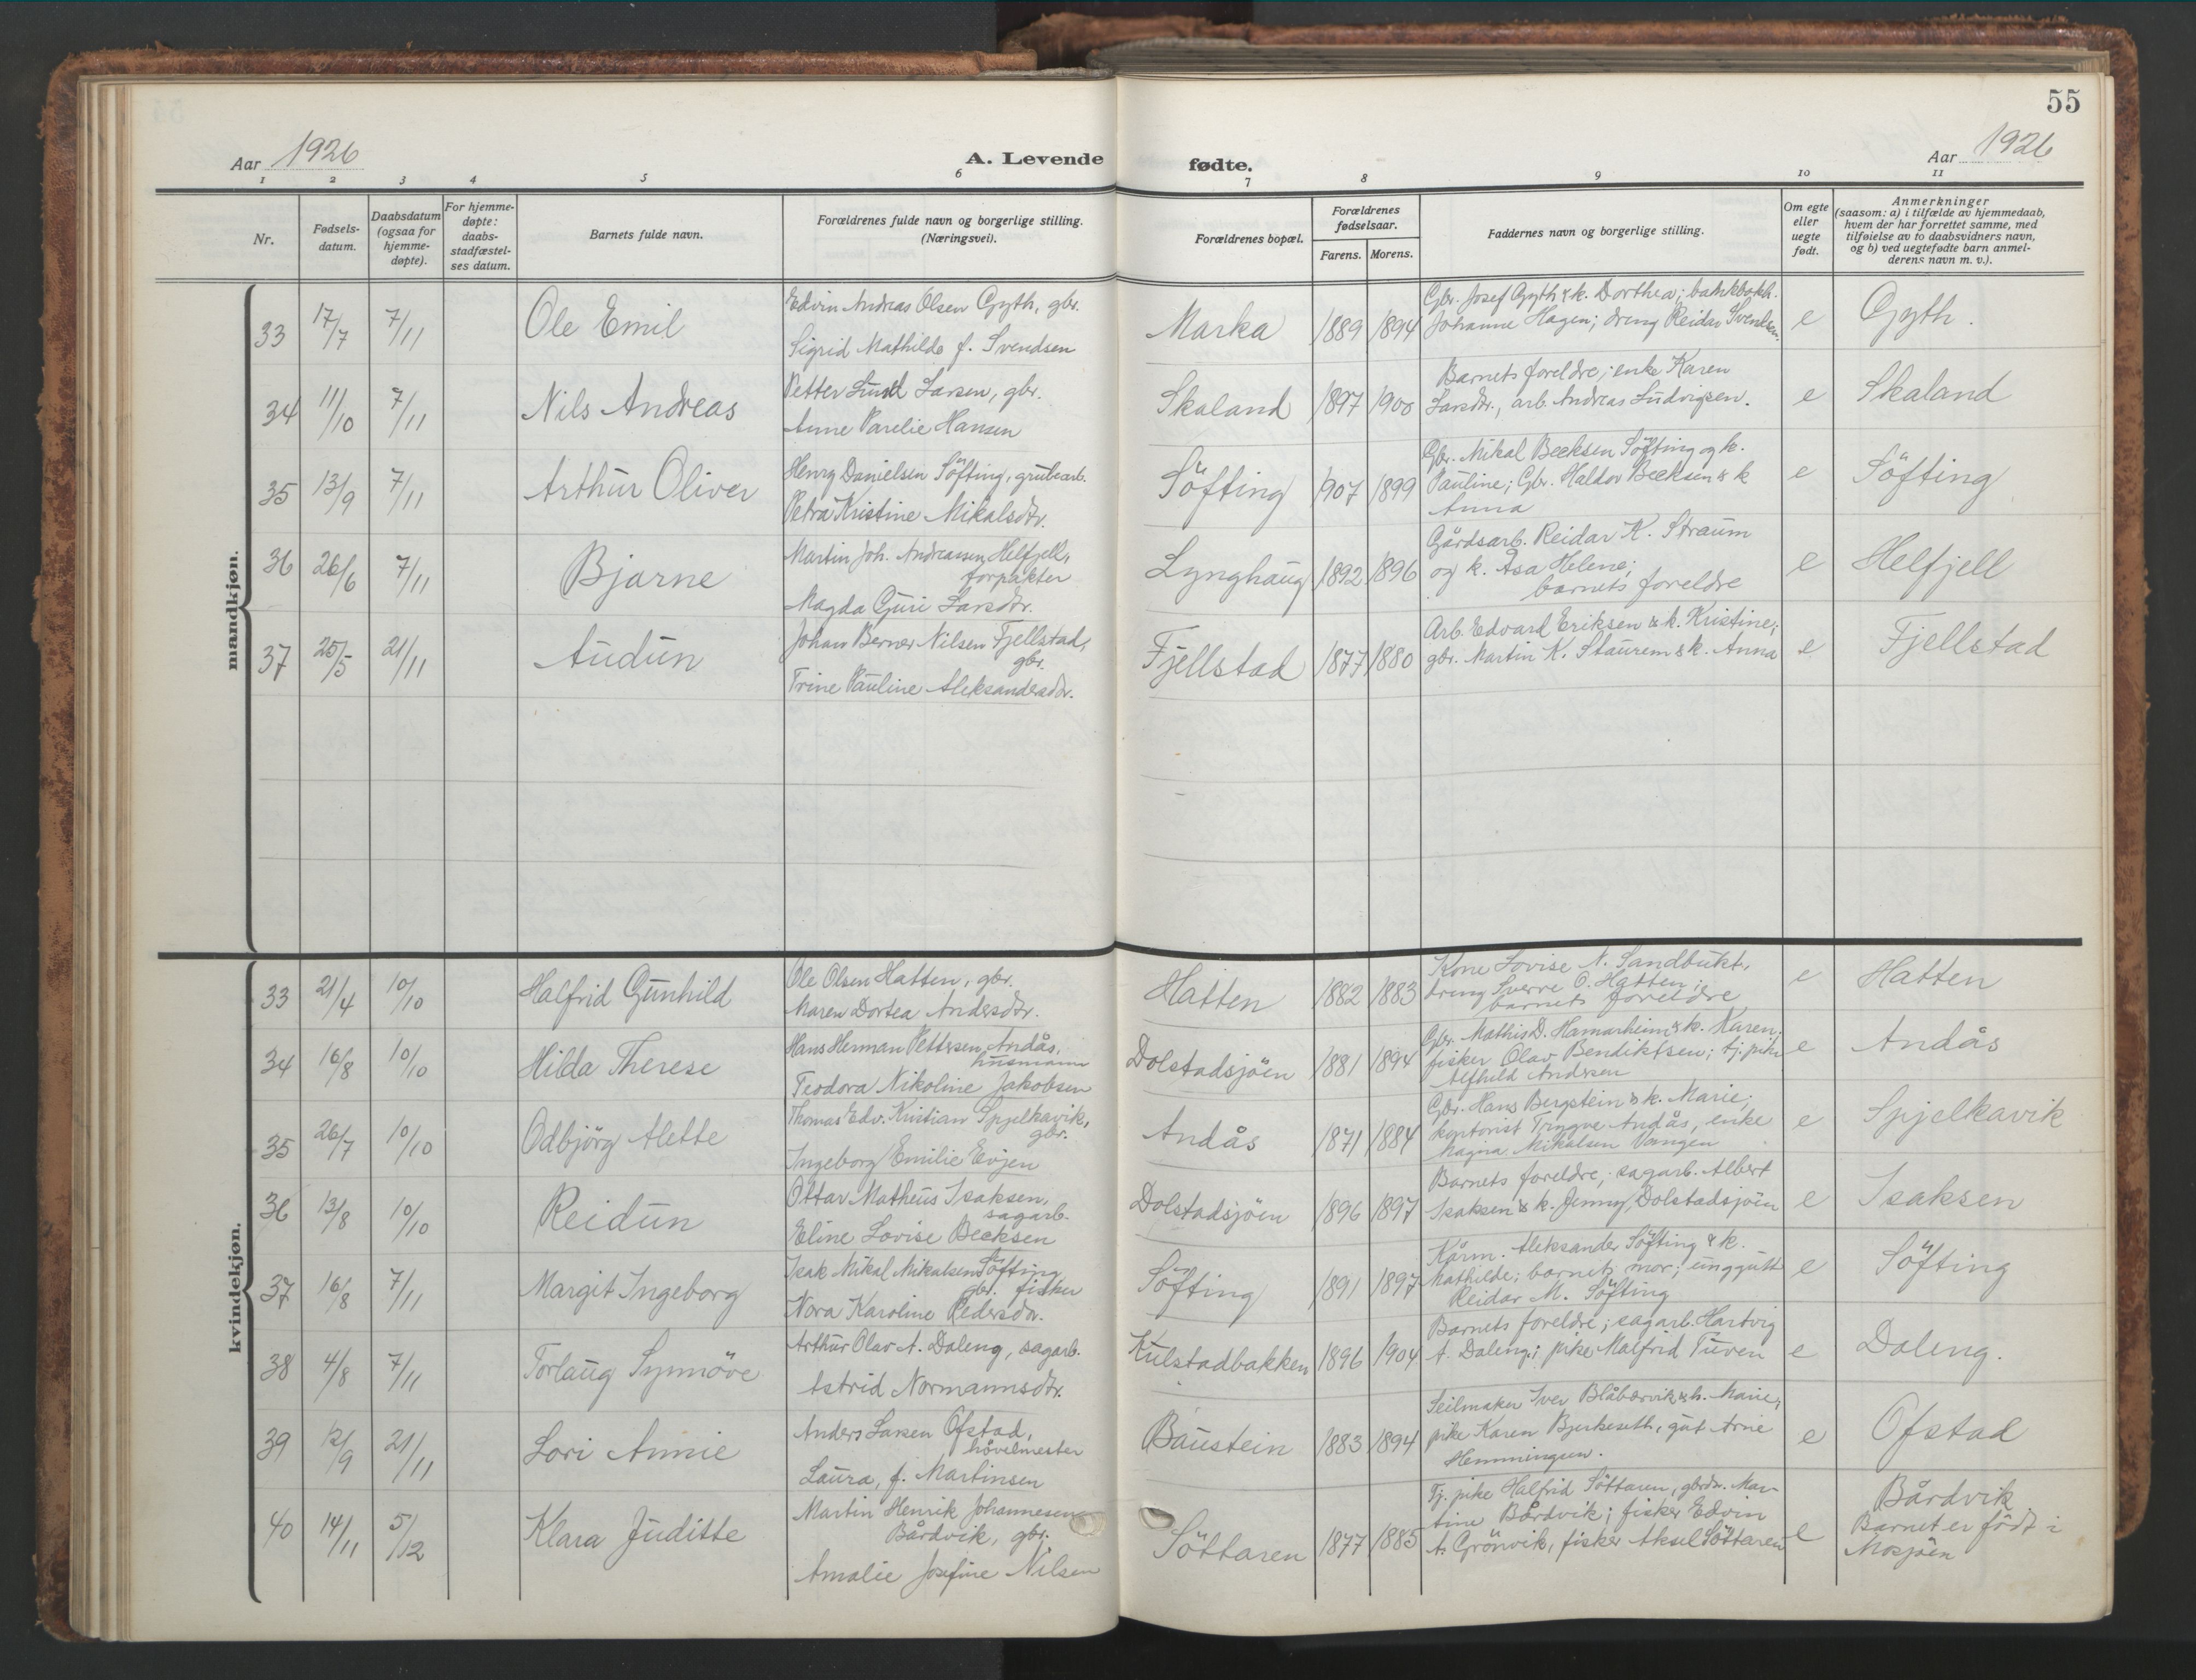 55
Aar 1926
A. Levende fødte.
Aar 1926
1 2 3 4 5 6 7 8 9 10 11
Nr.
Fødsels-
datum.
Daabsdatum
(ogsaa for
hjemme-
døpte).
For hjemme-
døpte:
daabs-
stadfæstel-
ses datum.
Barnets fulde navn.
Forældrenes fulde navn og borgerlige stilling.
(Næringsvei).
Forældrenes bopæl.
Forældrenes
fødselsaar.
Farens. Morens.
Faddernes navn og borgerlige stilling.
Om egte
eller
uegte
født.
Anmerkninger
(saasom: a) i tilfælde av hjemmedaab,
hvem der har forrettet samme, med
tilføielse av to daabsvidners navn,
og b) ved uegtefødte barn anmel-
derens navn m. v.).
mandkjøn.
33 17/7 7/11 Ole Emil
Edvin Andreas Olsen Gyth, gbr.
Sigrid Mathilde f. Svendsen
Marka 1889 1894
Gbr. Josef Gyth & k. Dorthea; bankbokh.
Johanne Hagen; dreng Reidar Svendsen.
e Gyth.
34 11/10 7/11 Nils Andreas
Petter Lund Larsen, gbr.
Anne Parelie Hansen
Skaland 1897 1900
Barnets foreldre; enke Karen
Larsdtr., arb. Andreas Ludvigsen.
e Skaland
35 13/9 7/11 Arthur Oliver
Henry Danielsen Söfting, grubearb.
Petra Kristine Mikalsdtr.
Söfting 1907 1899
Gbr. Mikal Becksen Söfting og k.
Pauline; Gbr. Haldor Becksen & k
Anna
e Söfting
36 26/6 7/11 Bjarne
Martin Joh. Andreassen Helfjell,
forpakter
Magda Guri Larsdtr.
Lynghaug 1892 1896
Gårdsarb. Reidar K. Straum
og k. Åsa Helene;
barnets foreldre
e Helfjell
37 25/5 21/11 Audun
Johan Berner Nilsen Fjellstad,
gbr.
Trine Pauline Aleksandersdtr.
Fjellstad 1877 1880
Arb. Edvard Eriksen & k. Kristine;
gbr. Martin K. Staurem & k. Anna
e Fjellstad
kvindekjøn.
33 21/4 10/10 Halfrid Gunhild
Ole Olsen Hatten, gbr.
Maren Dortea Andersdtr.
Hatten 1882 1883
Kone Lovise N. Sandbukt,
dreng Sverre O. Hatten;
barnets foreldre
e Hatten
34 16/8 10/10 Hilda Therese
Hans Herman Pettersen Andås,
husmann
Teodora Nikoline Jakobsen
Dolstadsjöen 1881 1894
Gbr. Mathis D. Hamarheim & k. Karen;
fisker Olav Bendiktsen; tj. pike
Alfhild Andersen
e Andås
35 26/7 10/10 Odbjörg Alette
Thomas Edv. Kristian Spjelkavik,
gbr.
Ingeborg Emilie Evjen
Andås 1871 1884
Gbr. Hans Bergstein & k. Marie;
kontorist Trygve Andås, enke
Magna Mikalsen Vangen
e Spjelkavik
36 13/8 10/10 Reidun
Ottar Matheus Isaksen,
sagarb.
Eline Lovise Becksen
Dolstadsjöen 1896 1897
Barnets foreldre; sagarb. Albert
Isaksen & k. Jenny, Dolstadsjöen
e Isaksen
37 16/8 7/11 Margit Ingeborg
Isak Mikal Mikalsen Söfting
gbr. fisker
Nora Karoline Pedersdtr.
Söfting 1891 1897
Kårm. Aleksander Söfting & k.
Mathilde; barnets mor; unggutt
Reidar M. Söfting
e Söfting
38 4/8 7/11 Torlaug Synnöve
Arthur Olav A. Daleng, sagarb.
Astrid Normannsdtr.
Kulstadbakken 1896 1904
Barnets foreldre; sagarb. Hartvig
A. Daleng; pike Malfrid Tuven
e Daleng.
39 12/9 21/11 Lori Annie
Anders Larsen Ofstad,
hövelmester
Laura, f. Martinsen
Baustein 1883 1894
Seilmaker Iver Blåbærvik & h. Marie;
pike Karen Bjerkeseth, gut Arne
Hemmingsen.
e Ofstad
40 14/11 5/12 Klara Juditte
Martin Henrik Johannesen
Bårdvik, gbr.
Amalie Josefine Nilsen
Söttaren 1877 1885
Tj. pike Halfrid Söttaren, gbrdr. Mar-
tine Bårdvik; fisker Edvin
A. Grönvik, fisker Aksel Söttaren
e Bårdvik
Barnet er födt i
Mosjöen